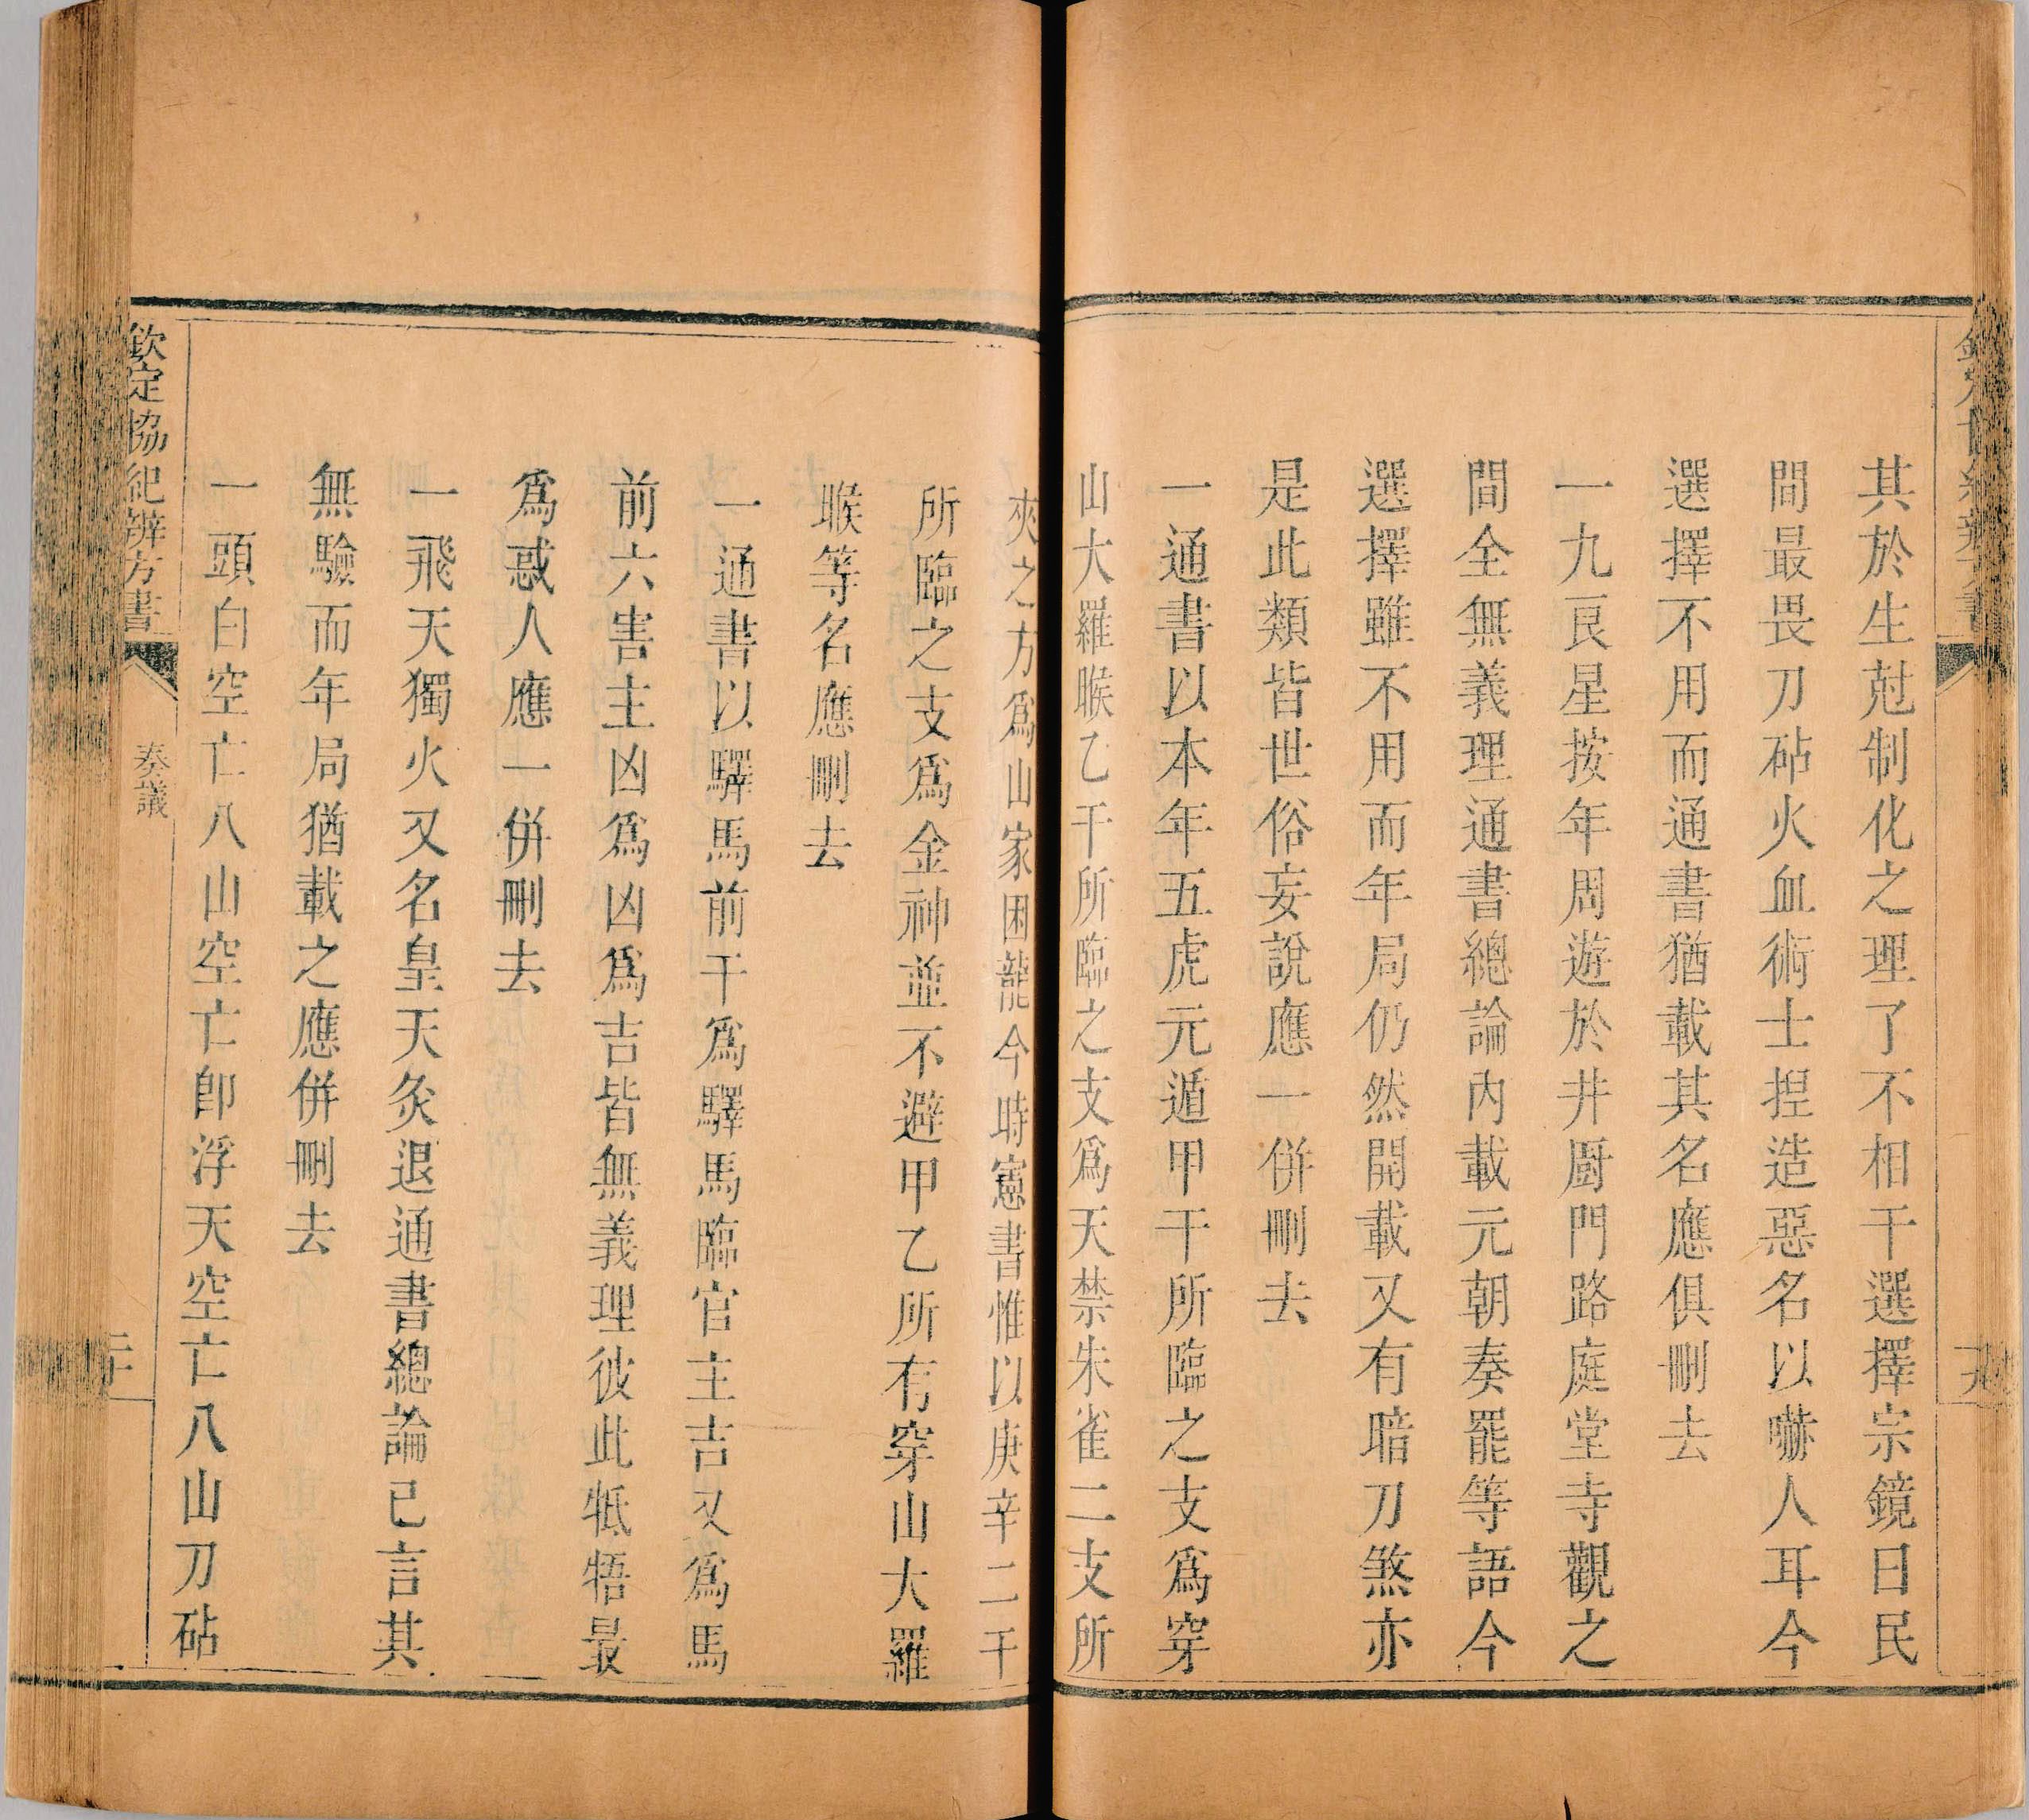 其於生尅制化之理了不相干選擇宗鏡曰民
間最畏刀砧火血術士捏造惡名以嚇人耳今
選擇不用而通書猶載其名應俱刪去
一九良星按年周遊於井厨門路庭堂寺觀之
間全無義理通書總論內載元朝奏罷等語今
選擇雖不用而年局仍然開載又有暗刀煞亦
是此類皆世俗妄說應一併刪去
一通書以本年五虎元遁甲干所臨之支爲穿
山大羅睺乙干所臨之支爲天禁朱雀二支所
夾之方爲山家困龍今時憲書惟以庚辛二干
所臨之支爲金神並不避甲乙所有穿山大羅
睺等名應刪去
一通書以驛馬前干爲驛馬臨官主吉又爲馬
前六害主凶爲凶爲吉皆無義理彼此牴牾最
爲惑人應一併刪去
一飛天獨火又名皇天灸退通書總論已言其
無驗而年局猶載之應併刪去
一頭白空亡八山空亡卽浮天空亡八山刀砧
欽定協紀辨方書
奏議